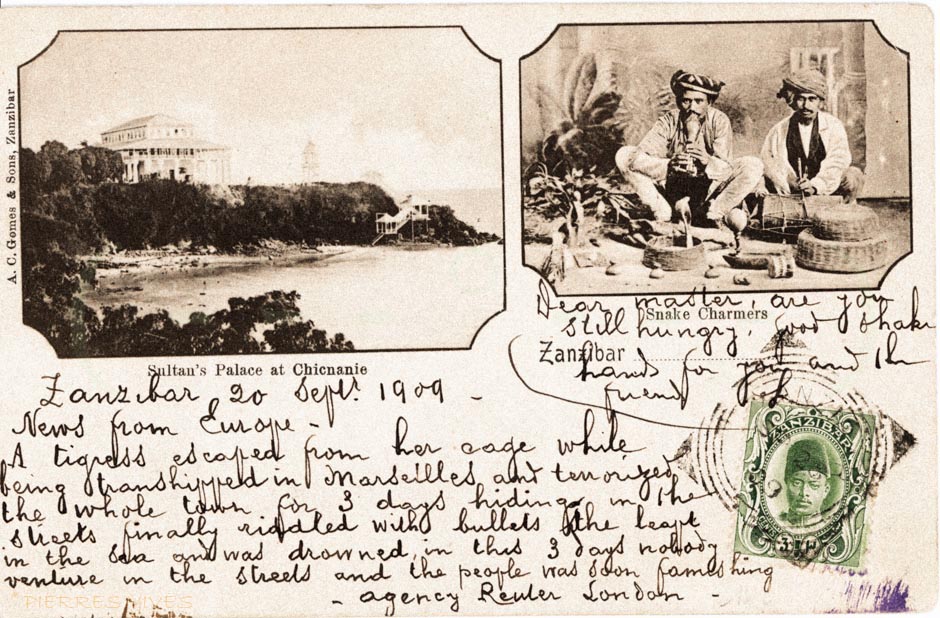 A. C. Gomes & Sons, Zanzibar
Sultan's Palace at Chicnanie
Snake Charmers
Zanzibar
Dear master, are you
still hungry, good shake
hands for you and the
friend
Zanzibar 20 Septr 1909 -
News from Europe -
A tigress escaped from her cage while
being transhipped in Marseilles and terrorized
the whole town for 3 days hiding in the
streets finally riddled with bullets she leapt
in the sea and was drowned, in this 3 days nobody
venture in the streets and the people was soon fameshing
- agency Reuter London -
ZANZIBAR
PIERRES VIVES